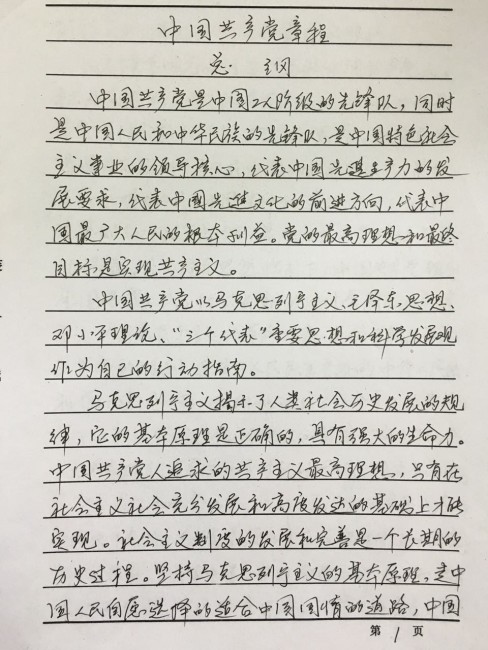 中国共产党章程
总 纲
中国共产党是中国工人阶级的先锋队，同时
是中国人民和中华民族的先锋队，是中国特色社会
主义事业的领导核心，代表中国先进生产力的发
展要求，代表中国先进文化的前进方向，代表中
国最广大人民的根本利益。党的最高理想和最终
目标是实现共产主义。
中国共产党以马克思列宁主义、毛泽东思想、
邓小平理论、“三个代表”重要思想和科学发展观
作为自己的行动指南。
马克思列宁主义揭示了人类社会历史发展的规
律，它的基本原理是正确的，具有强大的生命力。
中国共产党人追求的共产主义最高理想，只有在
社会主义社会充分发展和高度发达的基础上才能
实现。社会主义制度的发展和完善是一个长期的
历史过程。坚持马克思列宁主义的基本原理，走中
国人民自愿选择的适合中国国情的道路，中国
第 1 页